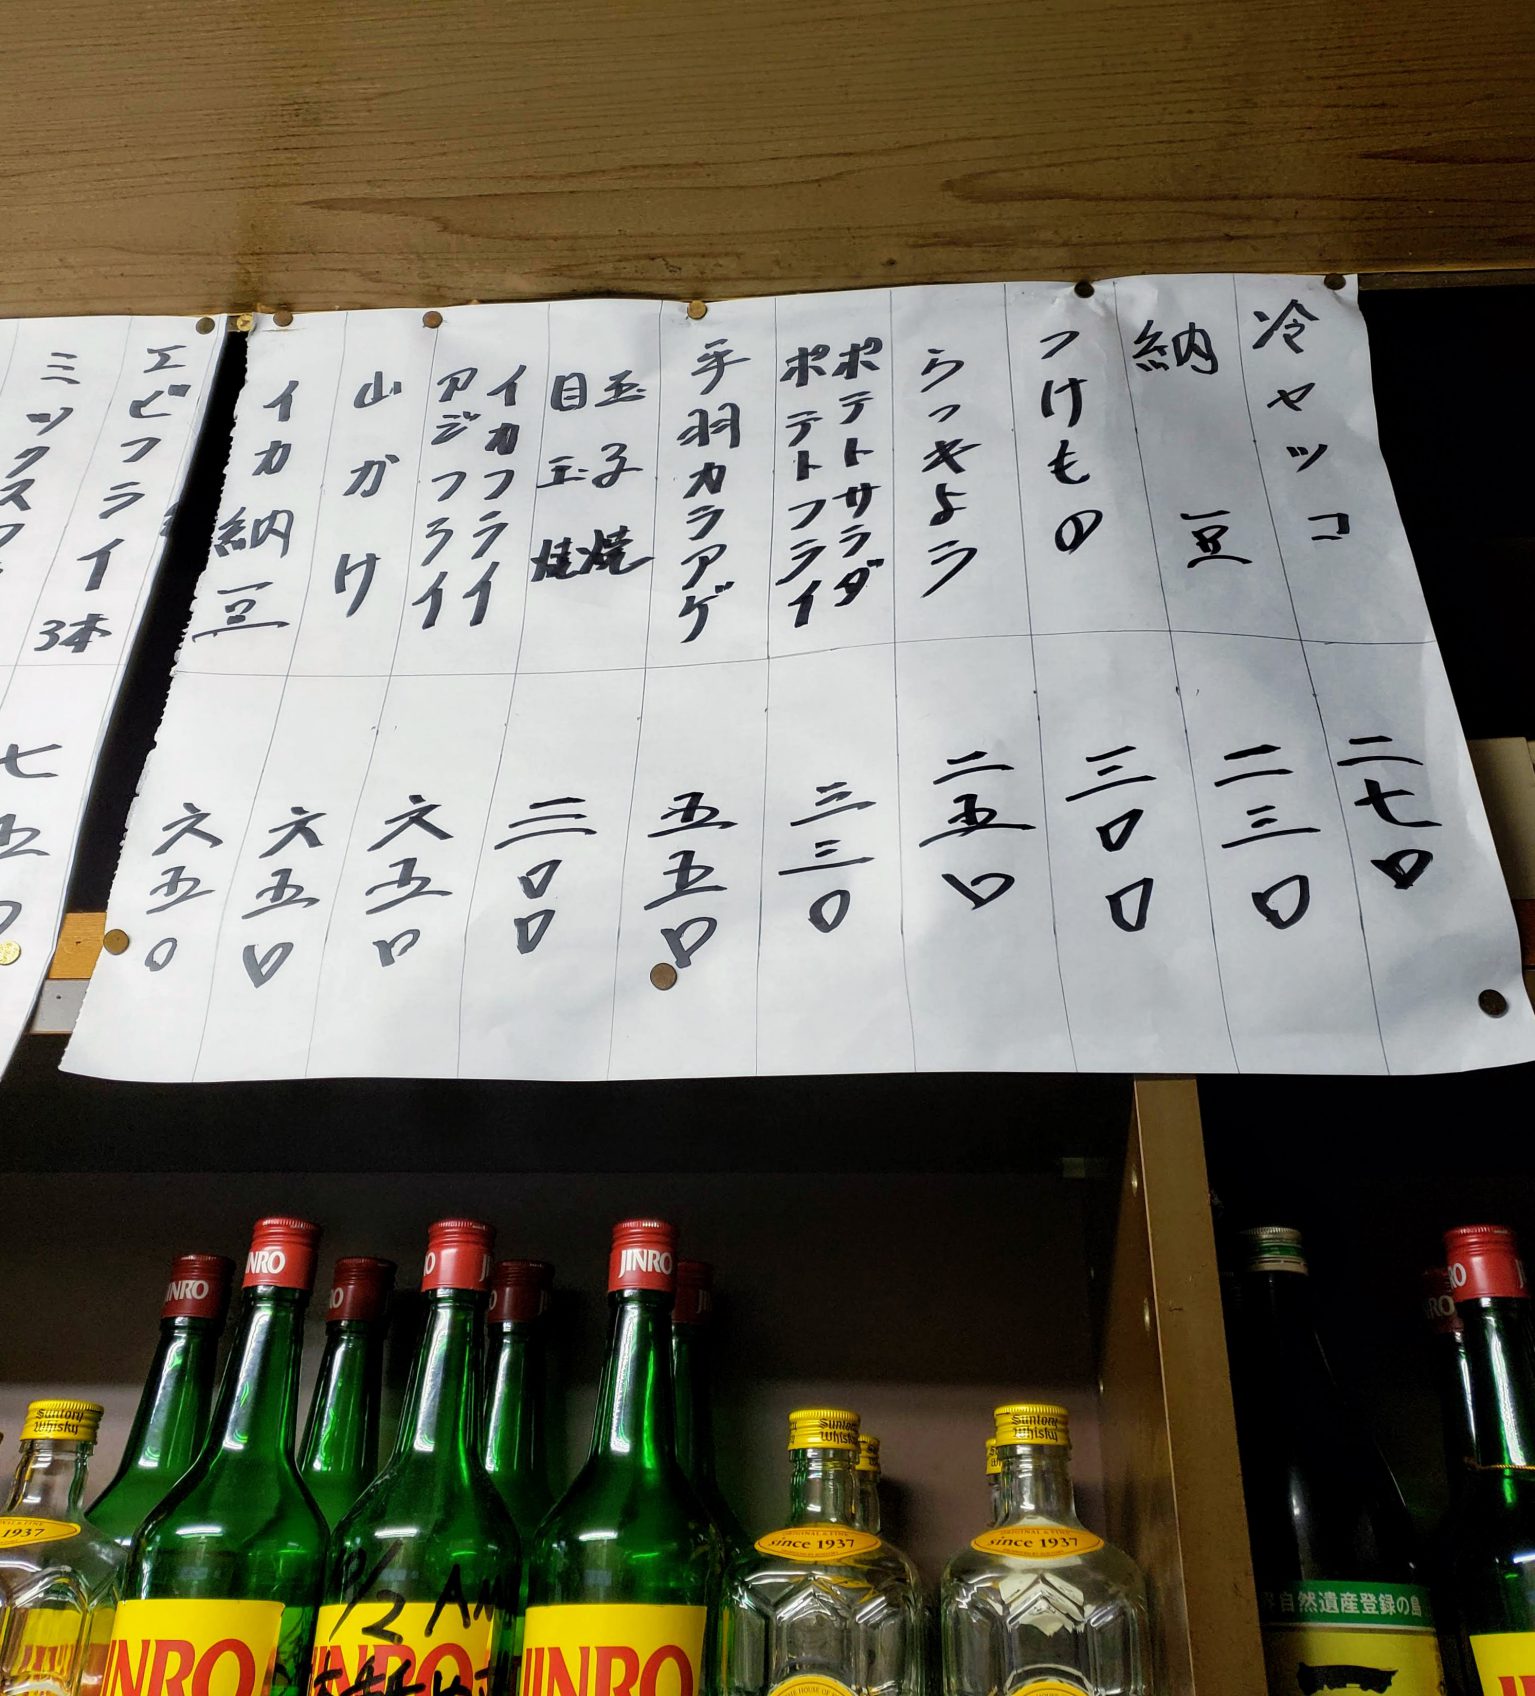 冷ヤッコ 二七〇
納豆 二三〇
つけもの 三〇〇
らっキョラ 二五〇
ポテトサラダ
ポテトフライ 三三〇
手羽カラアゲ 五五〇
玉子焼
目玉焼 三〇〇
イカフライ
アジフライ 六五〇
山かけ 六五〇
イカ納豆 六五〇
エビフライ3本 七五〇
ミックスフ
JINRO
JINRO
JINRO
Suntory Whisky
Suntory Whisky
Suntory Whisky
since 1937
since 1937
1937
10/2
JINRO
JINRO
JINRO
自然遺産登録の島